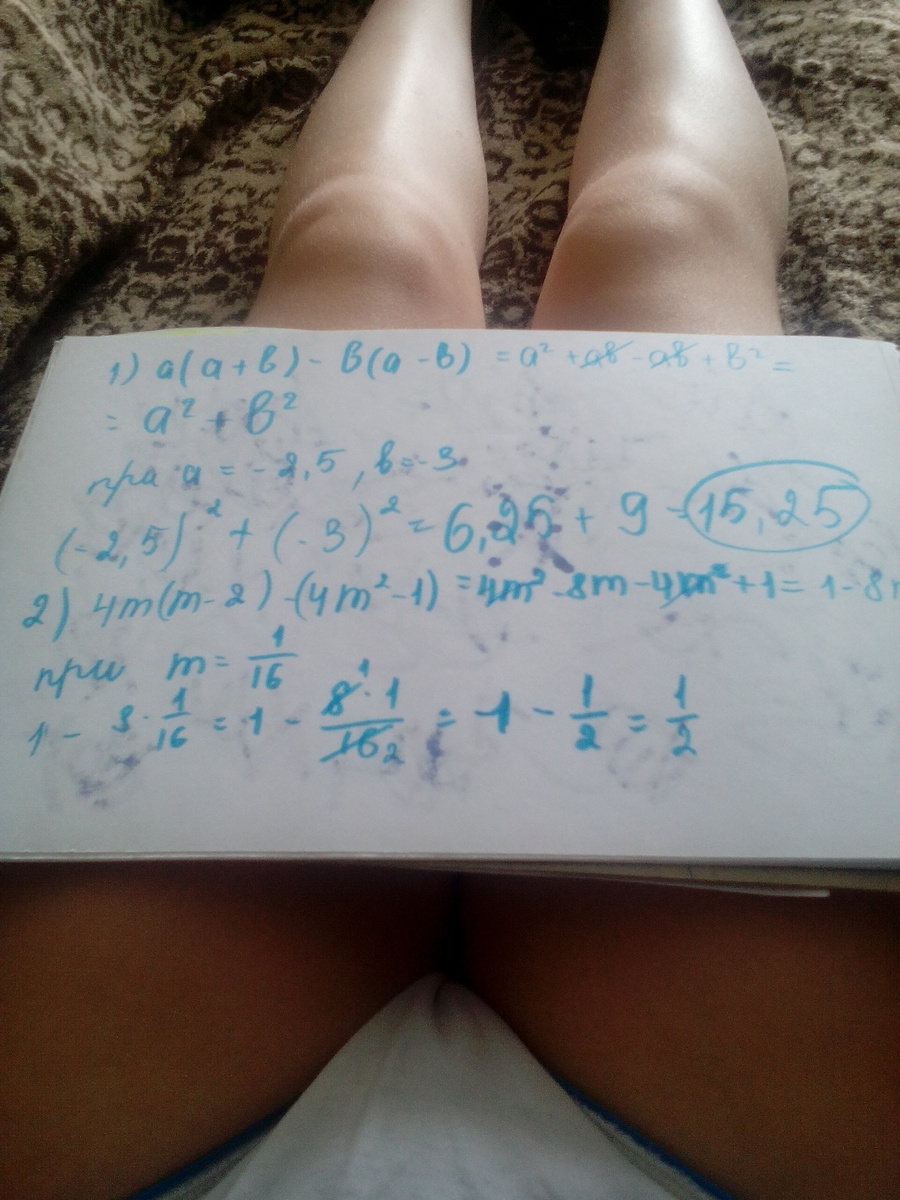 1) a(a+b) - b(a-b) = a² + ab - ab + b² =
= a² + b²
при a = -2,5, b = -3
(-2,5)² + (-3)² = 6,25 + 9 = 15,25
2) 4m(m-2) - (4m²-1) = 4m² - 8m - 4m² + 1 = 1 - 8m
при m = 1/16
1 - 8 · 1/16 = 1 - 8¹·1/16₂ = 1 - 1/2 = 1/2